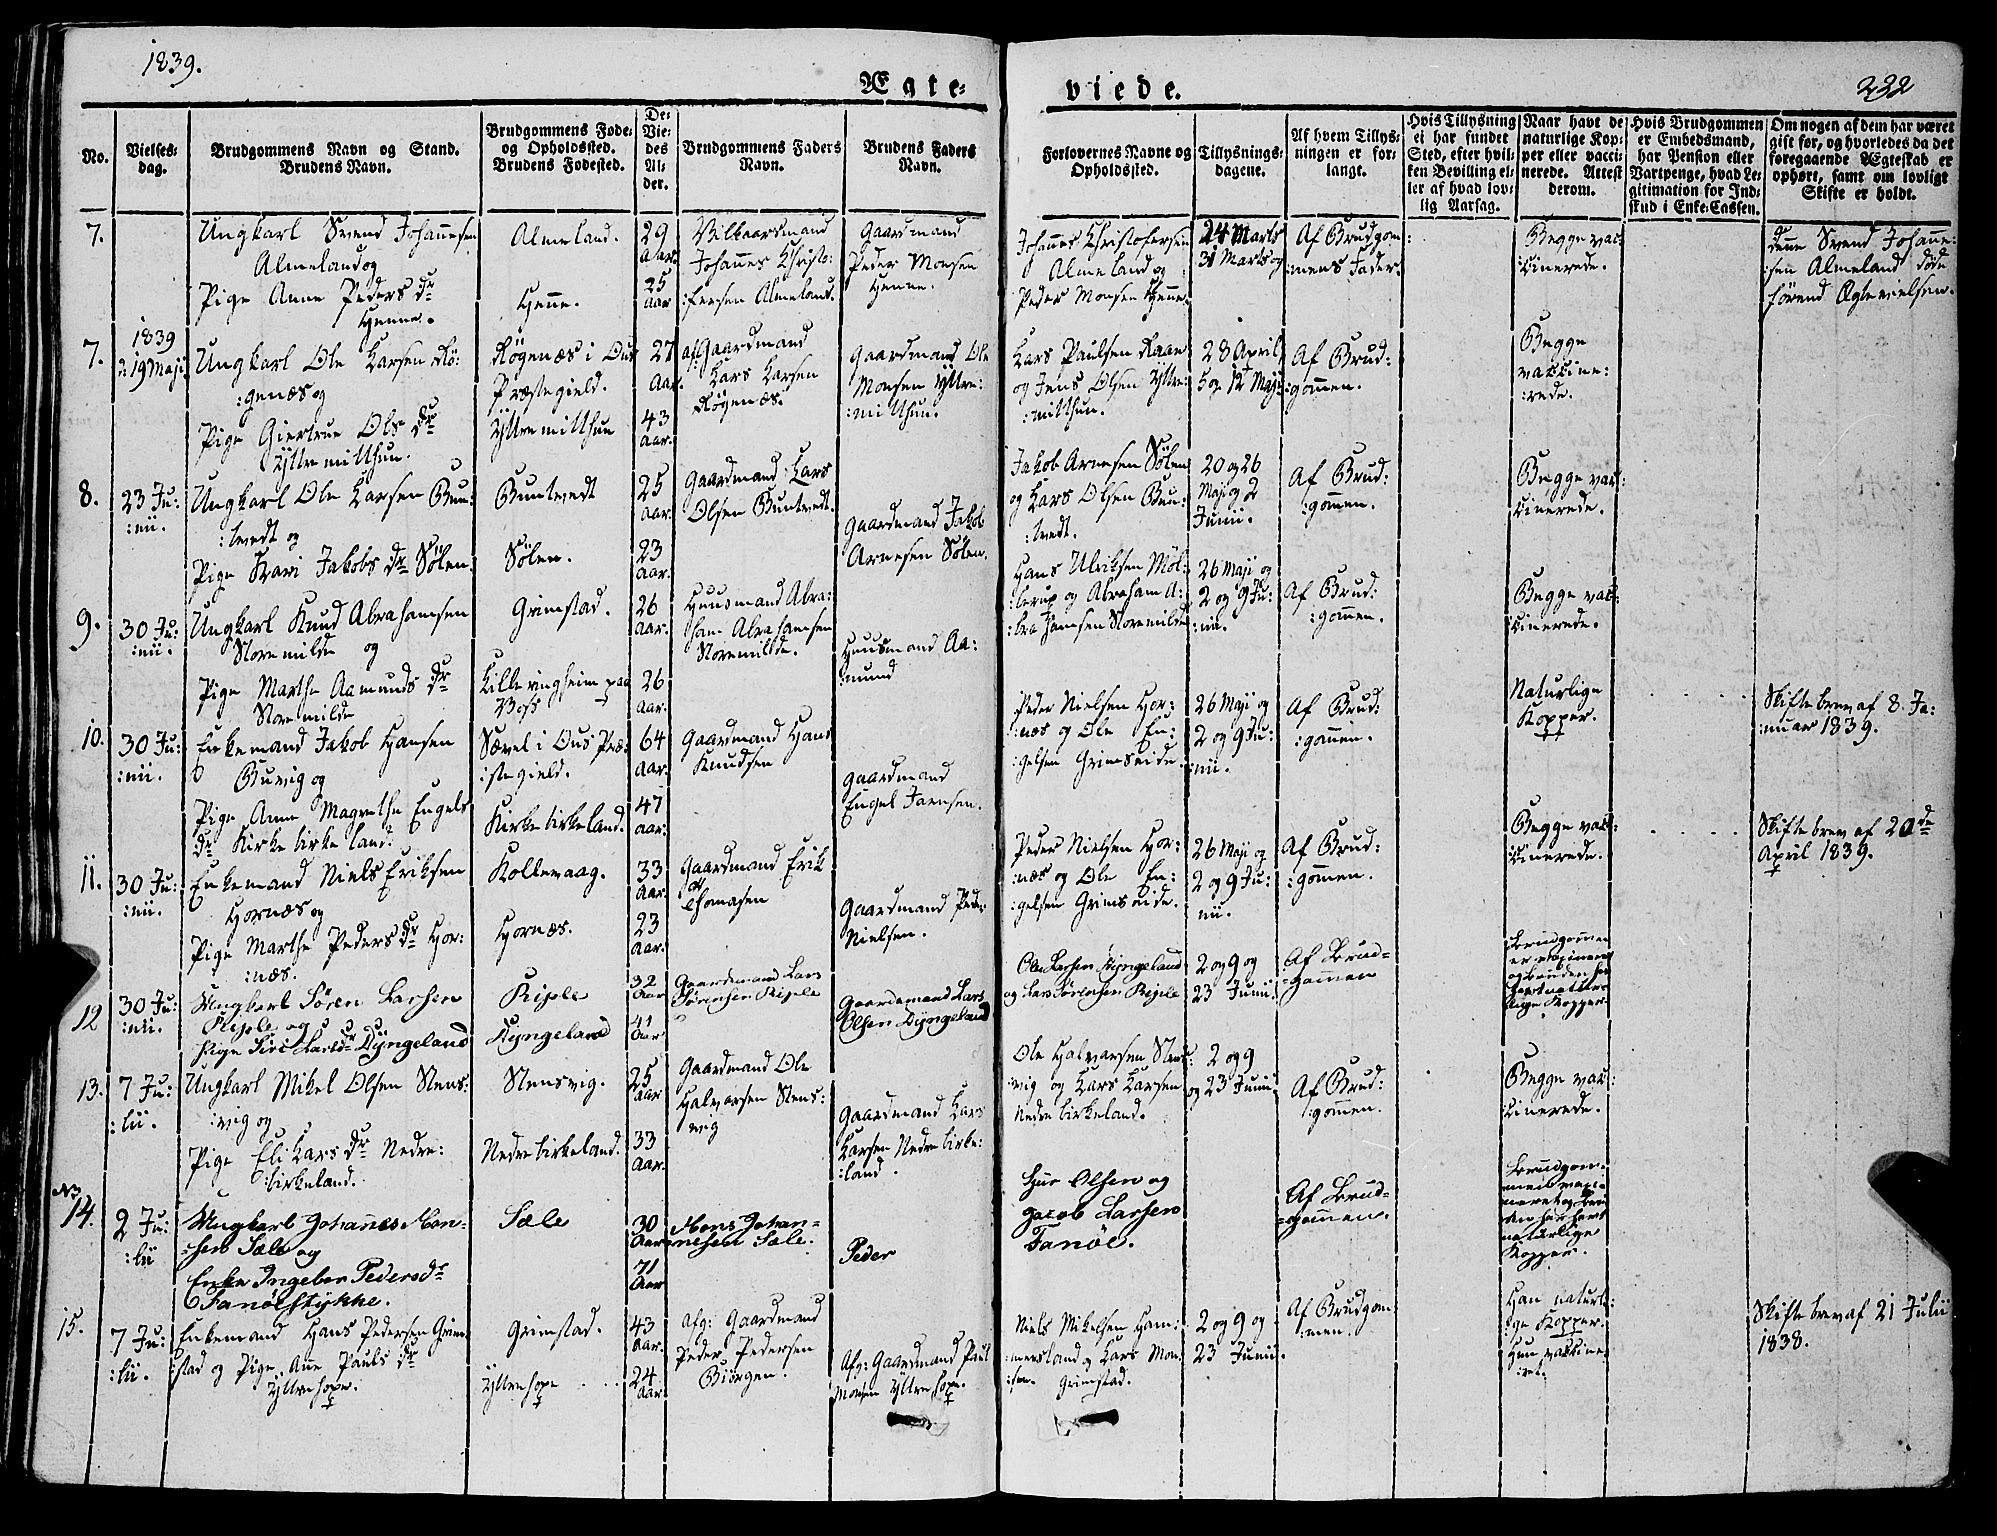 1839.
232
Ægte-
viede.
No.
Vielses-
dag.
Brudgommens Navn og Stand.
Brudens Navn.
Brudgommens Føde-
og Opholdssted.
Brudens Fødested.
De
Vie-
des
Al-
der.
Brudgommens Faders
Navn.
Brudens Faders
Navn.
Forlovernes Navne og
Opholdssted.
Tillysnings-
dagene.
Af hvem Tillys-
ningen er for-
langt.
Hvis Tillysning
ei har fundet
Sted, efter hvil-
ken Bevilling el-
ler af hvad lov-
lig Aarsag.
Naar havt de
naturlige Kop-
per eller vacci-
nerede. Attest
derom.
Hvis Brudgommen
er Embedsmand,
har Pension eller
Vartpenge, hvad Le-
gitimation for Ind-
skud i Enke-Cassen.
Om nogen af dem har været
gift før, og hvorledes da det
foregaaende Ægteskab er
ophørt, samt om lovligt
Skifte er holdt.
7.
Ungkarl Svend Johannesen
Almeland og
Pige Anne Peders dr
Henne.
Almeland.
Henne.
29
Aar.
25
Aar
Vilkaarsmand
Johannes Christo:
:fersen Almeland.
Gaardmand
Peder Monsen
Henne.
Johannes Christofersen
Almeland og
Peder Monsen Henne.
24 Marts
31 Marts og
Af Brudgom
:mens Fader.
Begge vac:
:cinerede.
Denne Svend Johanne:
:sen Almeland døde
førend Ægtevielsen.
7.
1839
19 Maji
Ungkarl Ole Larsen Rø:
:genæs og
Pige Giertrue Ols dr
Yttremitthun.
Røgenæs i Ous
Præstegield.
Yttremitthun
27
Aar.
43
Aar.
af Gaardmand
Lars Larsen
Røgenæs.
Gaardmand Ole
Monsen Yttre:
:mitthun.
Lars Paulsen Raae
og Jens Olsen Yttre:
:mitthun.
28 April
5 og 12 Maji
Af Brud:
:gommen.
Begge
vakkine:
:rede.
8.
23 Ju:
:nii.
Ungkarl Ole Larsen Bun:
:tvedt og
Pige Kari Jakobs dr Sølen.
Buntvedt
Sølen.
25
Aar.
23
Aar.
Gaardmand Lars
Olsen Buntvedt.
Gaardmand Jakob
Arnesen Sølen.
Jakob Arnesen Sølen
og Lars Olsen Bun:
:tvedt.
20 og 26
Maji og 2
Junii.
Af Brud:
:gommen.
Begge vac:
:cinerede.
9.
30 Ju:
:nii.
Ungkarl Knud Abrahamsen
Storemilde og
Pige Marthe Aamunds dr
Storemilde
Grimstad.
Lilleringheim paa
Voss
26
Aar.
26
Aar.
Huusmand Abra:
ham Abrahamsen
Storemilde.
Huusmand Aa:
:mund
Hans Ulriksen Møl:
:lerup og Abraham A:
:brahamsen Storemilde
26 Maji og
2 og 9 Ju:
:nii.
Af Brud:
:gommen.
Begge vak:
:cinerede.
10.
30 Ju:
:nii.
Enkemand Jakob Hansen
Buvig og
Pige Anne Magrethe Engels
dr Kirkebirkeland.
Sævel i Ous Præ:
:stegield.
Kirkebirkeland.
64
Aar.
47
Aar.
Gaardmand Hans
Knudsen
Gaardmand
Engel Joensen.
Peder Nielsen Hor:
:næs og Ole En:
:gelsen Grimseide.
26 Maji og
2 og 9 Ju:
:nii.
Af Brud:
:gommen.
Naturlige
Kopper.
Skiftebrev af 8 Ja:
:nuar 1839.
11.
30 Ju:
:nii.
Enkemand Niels Eriksen
Hornæs og
Pige Marthe Peders dr Hor:
:næs.
Kollevaag.
Hornæs.
33
Aar.
23
Aar.
Gaardmand Erik
Thomasen
Gaardmand Peder
Nielsen.
Peder Nielsen Hor:
:næs og Ole En:
:gelsen Grimseide.
26 Maji og
2 og 9 Ju:
nii.
Af Brud:
:gommen.
Begge vak:
:cinerede.
Skiftebrev af 20de
April 1839.
12
30 Ju:
:nii.
Ungkarl Søren Larsen
Riple og
Pige Siri Larsdr Dyngeland
Riple
Dyngeland
32
Aar
41
Aar
Gaardmand Lars
Sørensen Riple
Gaardmand Lars
Olsen Dyngeland
Ole Larsen Dyngeland
og Lars Sørensen Riple
2 og 9 og
23 Junii
Af Brud=
=gommen
Brudgommen
er vaxineret
og Bruden har
havt natur
lige Kopper
13.
7 Ju:
:lii.
Ungkarl Mikel Olsen Stens:
:vig og
Pige Eli Lars dr Nedre:
:birkeland.
Stensvig.
Nedrebirkeland.
25
Aar
33
Aar.
Gaardmand Ole
Halvorsen Stens:
vig
Gaardmand Lars
Larsen Nedrebirke:
:land.
Ole Halvorsen Stens:
:vig og Lars Larsen
Nedrebirkeland.
2 og 9
og 23 Junii
Af Brud:
:gommen.
Begge vac:
:cinerede.
No
14.
2 Ju:
:lii
Ungkarl Johannes Mon=
=sen Sæle og
Enke Ingebor Pedersdr
Fanøestykke.
Sæle
30
Aar
71
Aar
Mons Johan=
=nesen Sæle.
Peder
Siur Olsen og
Jacob Larsen
Fanøe.
Af Brud=
=gommen.
Brudgom=
men vaxi=
neret og Bru
den har havt
naturlige
Kopper.
15.
7 Ju:
:lii.
Enkemand Hans Pedersen Grim
:stad og Pige Ane Pauls dr
Yttrehope.
Grimstad.
Yttrehope
43
Aar.
24
Aar.
Afg: Gaardmand
Peder Pedersen
Biørgen.
Afg: Gaardmand Paul
Monsen Yttrehope.
Niels Mikelsen Ham:
:mersland og Lars Mon:
:sen Grimstad.
2 og 9 og
23 Junii.
Af Brudgom
:men.
Han naturli:
:ge Kopper.
Hun vakkine
:ret.
Skiftebrev af 21 Julii
1838.